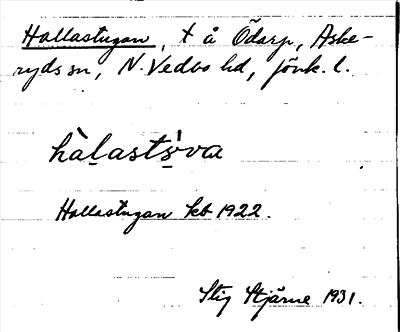 Hallastugan, t å Ödarp, Aske-
ryds sn, N. Vedbo hd, Jönk. l.
hàl̠asts̠i̇va
Hallastugan kb 1922.
Stig Stjärne 1931.